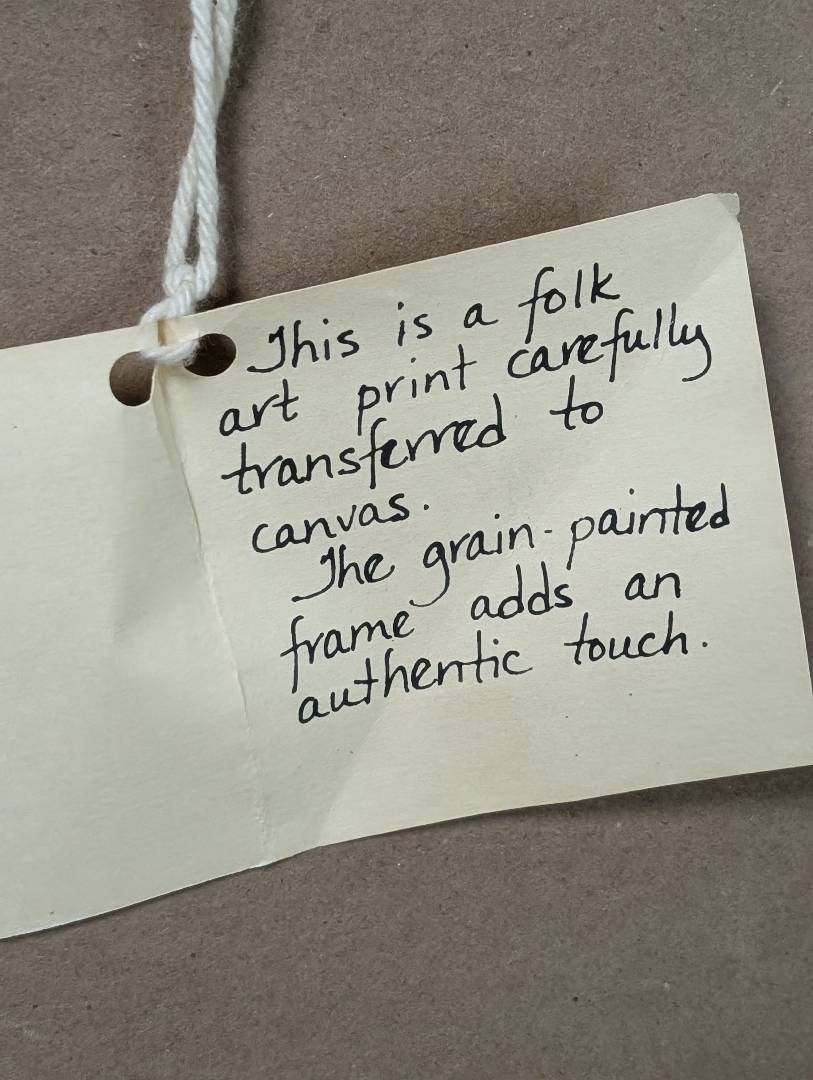 This is a folk
art print carefully
transferred to
canvas.
The grain-painted
frame adds an
authentic touch.